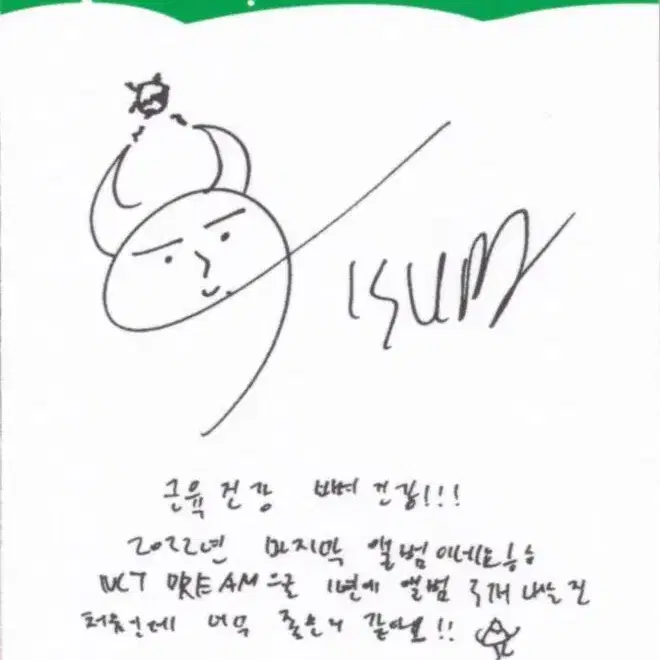 JISUNG
근육 건강 뼈 건강!!!
2022년 마지막 앨범이네요ㅎㅎ
NCT DREAM으로 1년에 앨범 3개 내는 건
처음인데 너무 좋은거 같아요!!